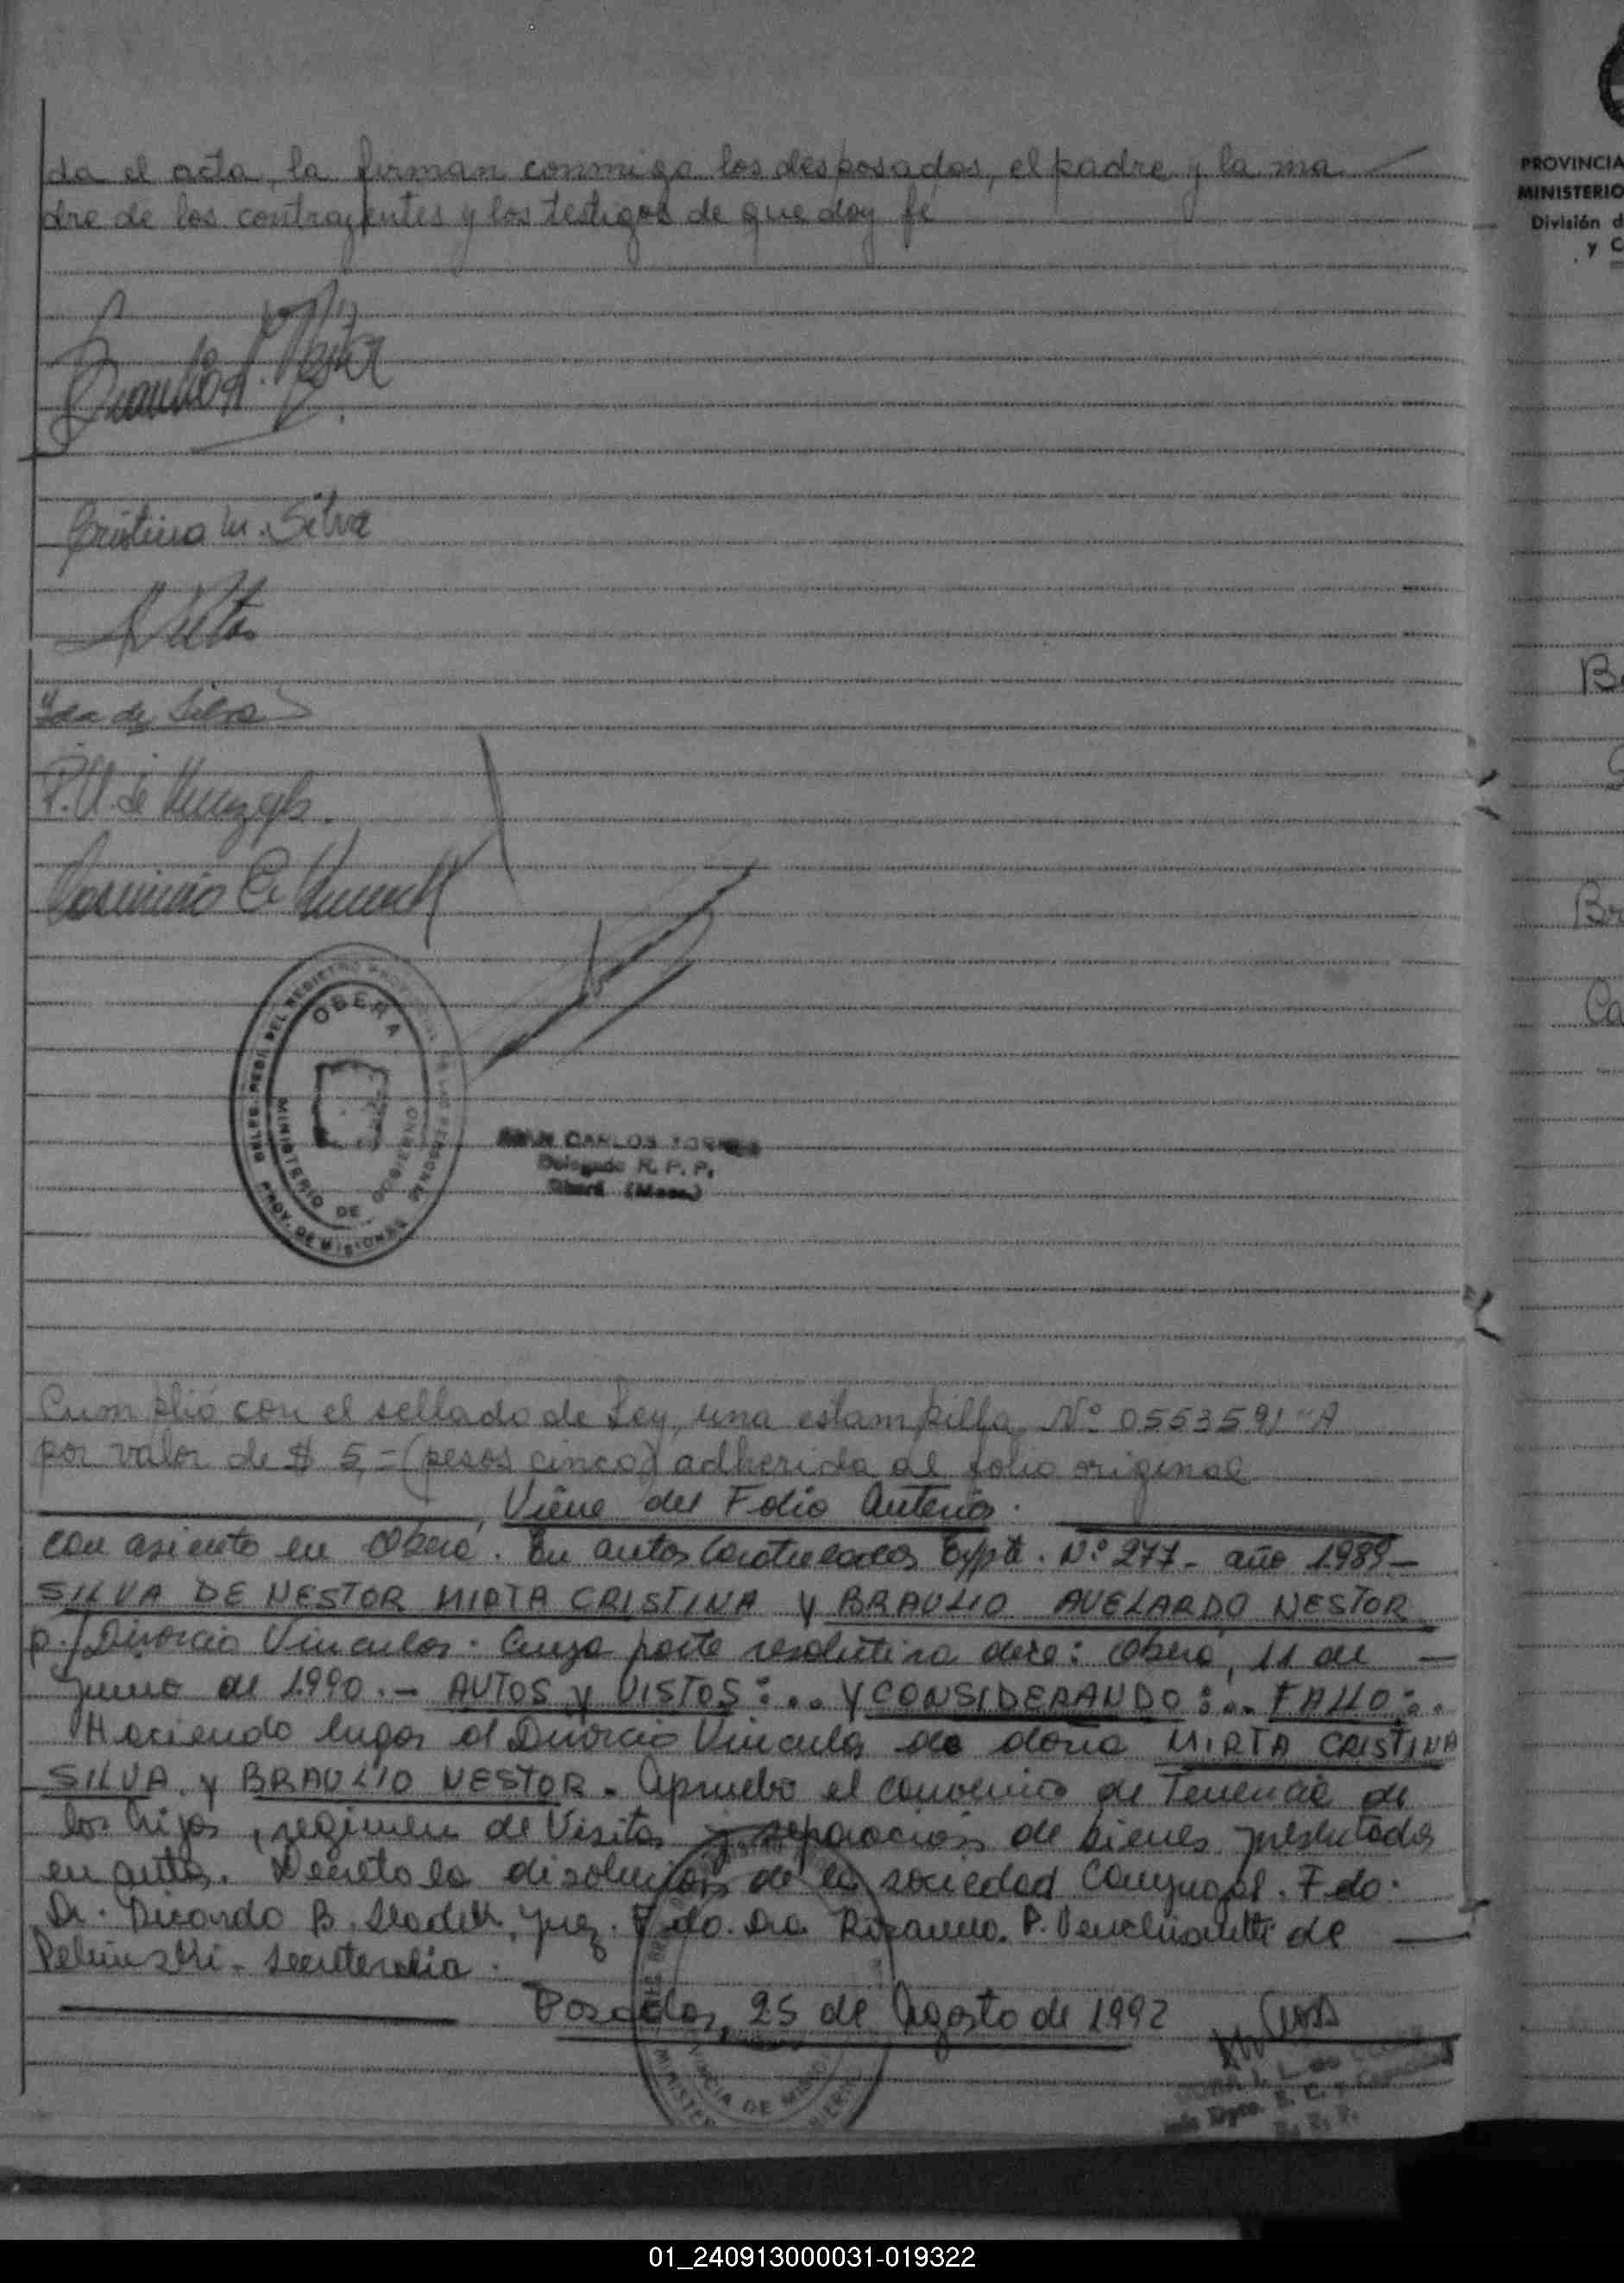 da el acta, la firman conmigo los desposados, el padre y la ma
dre de los contrayentes y los testigos de que doy fe
Cristina M. Silva
Ida de Silva
DEL REGISTRO
OBERA
MINISTERIO DE GOBIERNO
PROV. DE MISIONES
JUAN CARLOS TORRES
Delegado R. P. P.
Oberá (Mnes.)
Cumplió con el sellado de Ley, una estampilla Nº 0553591 "A
por valor de $ 5,= (pesos cinco) adherida al folio original
Viene del Folio Anterior.
con asiento en Oberá. En autos Caratulados Expte. Nº 277- año 1989-
SILVA DE NESTOR MIRTA CRISTINA Y BRAULIO AVELARDO NESTOR
p./ Divorcio Vincular. Cuya parte resolutiva dice: Oberá, 11 de
Junio de 1990.- AUTOS y VISTOS:.. Y CONSIDERANDO:.. FALLO:..
Haciendo lugar al Divorcio Vincular de doña MIRTA CRISTINA
SILVA y BRAULIO NESTOR. Apruebo el convenio de Tenencia de
los hijos, regimen de Visitas y separacion de bienes presentados
en autos. Decreto la disolucion de la sociedad Conyugal. Fdo.
Dr. Ricardo B. Juez. Fdo. Dra P. de
Secretaria.
Posadas, 25 de Agosto de 1992
PROVINCIA
MINISTERIO
División d
y C
B
Br
Ca
01_240913000031-019322